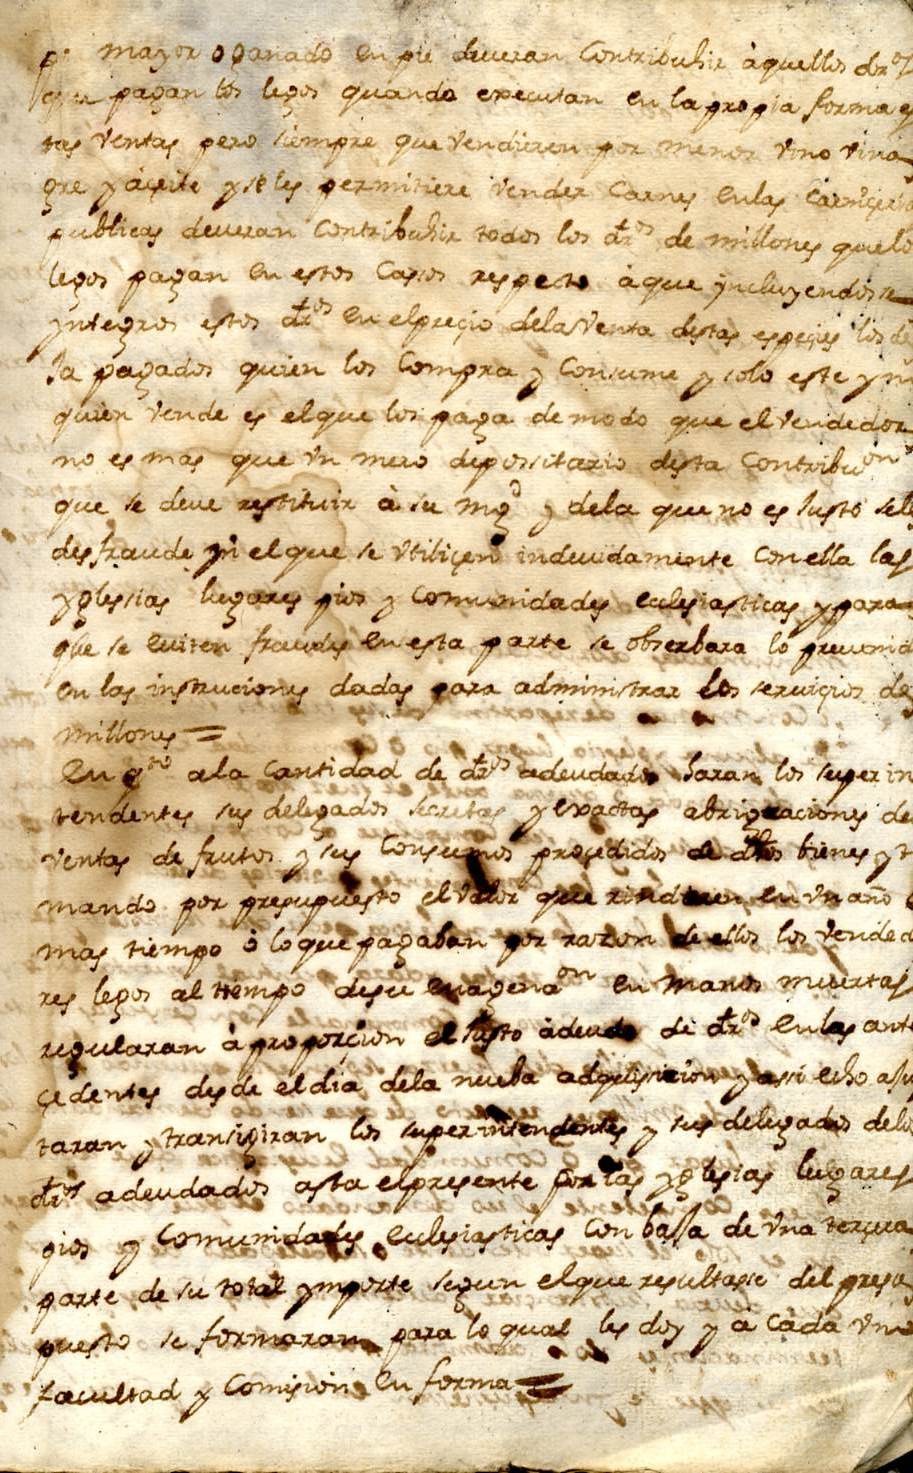 pr mayor o ganado en pie deveran Contribuhir à aquellos dros
que pagan los legos quando executan en la propia forma es
tas ventas pero siempre que vendieren por menor vino vina
gre y açeite y se les permitiere vender Carnes en las Carniçerias
publicas deveran Contribuhir todos los dros de millones que lo
legos pagan en estos Casos respecto à que yncluyendose
yntegros estos dros en el preçio dela Venta destas espeçies los de
Ja pagados quien los Compra y Consume y solo este y no
quien vende es el que los paga de modo que el vendedor
no es mas que un mero depossitario desta Contribuon
que se deve restituir à su Mgd y dela que no es Justo se le
desfraude ni el que se utiliçen indevidamente con ella las
yglesias lugares pios y Comunidades eclesiasticas y para
que se eviten fraudes en esta parte se obserbara lo prevenid
en las instruciones dadas para administrar los serviçios de
millones =
En qto ala Cantidad de dros adeudados haran los superin
tendentes sus delegados secretas y exactas abriguaciones de
ventas de frutos y sus Consumos proçedidos de dhos bienes y to
mando por presupuesto el valor que rindieren en un año o
mas tiempo ò lo que pagaban por razon de ellos los vended
res legos al tiempo desu enagenaon en manos muertas
regularan à proporçion el Justo adeudo de dros en las ante
çedentes desde el dia dela nueba adquisicion y assi echo ajus
taran y transigiran los superintendentes y sus delegados delos
dros adeudados asta el presente por las yglesias lugares
pios y Comunidades Eclesiasticas con baja de una terçera
parte de su total ymporte segun el que resultasse del presu
puesto se formaran para lo qual les doy y à Cada uno
facultad y Comision en forma =